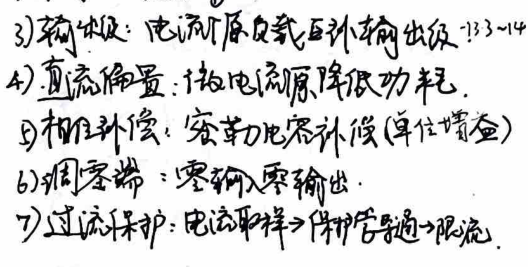 3)输出级：电流源负载互补输出级 T13~14
4)直流偏置：微电流源降低功耗.
5)相位补偿：密勒电容补偿(单位增益)
6)调零端：零输入零输出.
7)过流保护：电流取样→保护管导通→限流.